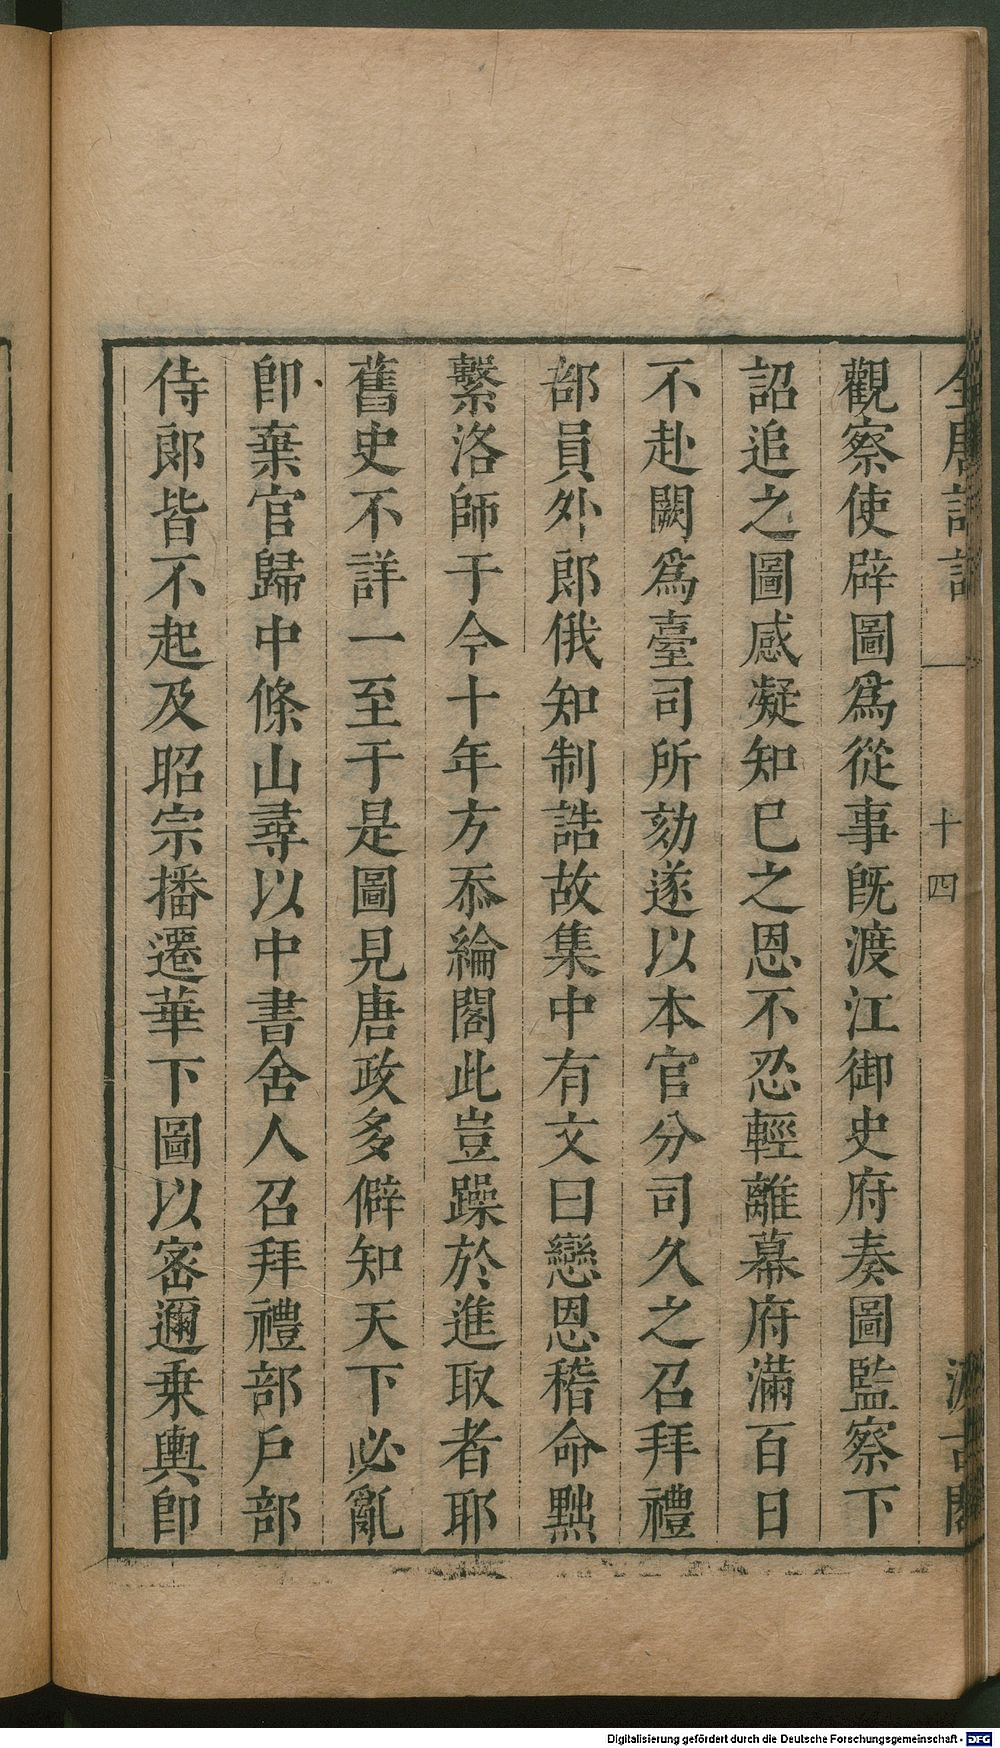 全唐詩話 一 十四 汲古閣
觀察使辟圖爲從事旣渡江御史府奏圖監察下
詔追之圖感凝知巳之恩不忍輕離幕府滿百日
不赴闕爲臺司所劾遂以本官分司久之召拜禮
部員外郎俄知制誥故集中有文曰戀恩稽命黜
繫洛師于今十年方忝綸閣此豈躁於進取者耶
舊史不詳一至于是圖見唐政多僻知天下必亂
卽棄官歸中條山尋以中書舍人召拜禮部戶部
侍郎皆不起及昭宗播遷華下圖以密邇乗輿卽
Digitalisierung gefördert durch die Deutsche Forschungsgemeinschaft - DFG